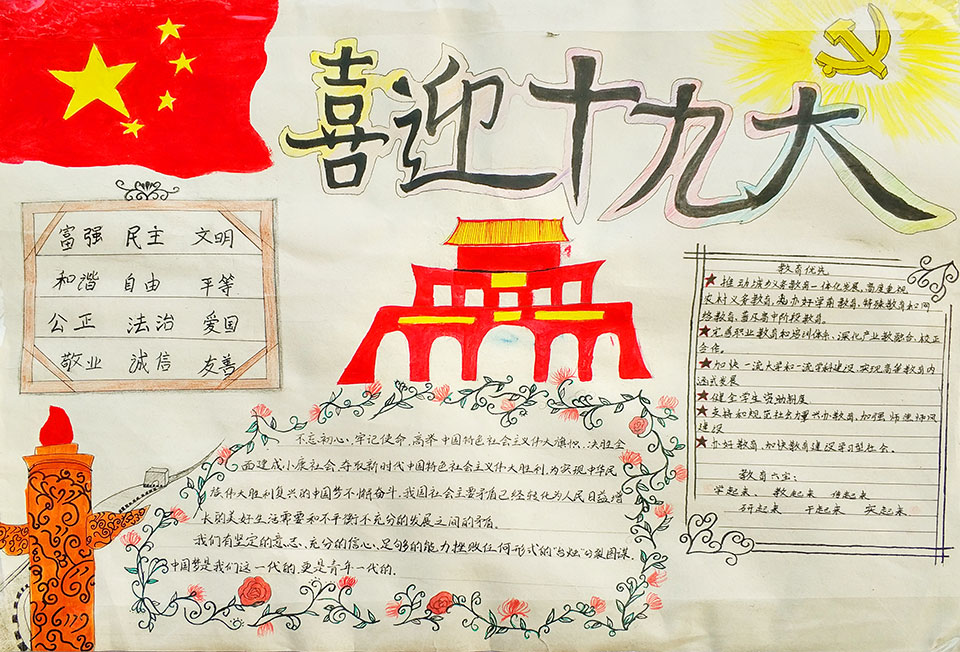 喜迎十九大
富强 民主 文明
和谐 自由 平等
公正 法治 爱国
敬业 诚信 友善
教育优先
★推动城乡义务教育一体化发展,高度重视
农村义务教育,办好学前教育,特殊教育和网
络教育,普及高中阶段教育。
★完善职业教育和培训体系,深化产业教融合、校正
合作。
★加快一流大学和一流学科建设,实现高等教育内
涵式发展
★健全学生资助制度
★支持和规范社会力量兴办教育,加强师德师风
建设
★办好教育,加快教育建设学习型社会。
教育六宝:
学起来、教起来 信起来
研起来 干起来 实起来
不忘初心,牢记使命,高举中国特色社会主义伟大旗帜,决胜全
面建成小康社会,夺取新时代中国特色社会主义伟大胜利,为实现中华民
族伟大胜利复兴的中国梦不懈奋斗。我国社会主要矛盾已经转化为人民日益增
长的美好生活需要和不平衡不充分的发展之间的矛盾。
我们有坚定的意志、充分的信心、足够的能力挫败任何形式的"台独"分裂图谋。
中国梦是我们这一代的,更是青年一代的。